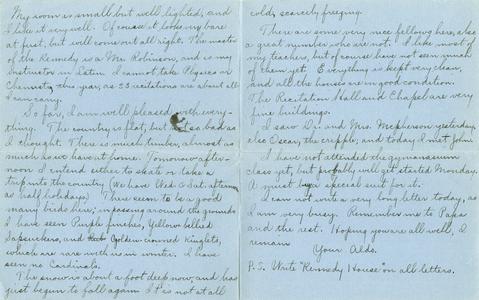 My room is small but well lighted, and
I like it very well. Of course it looks very bare
at first, but will come out all right. The master
of the Kennedy is a Mr. Robinson, and is my
instructor in Latin. I cannot take Physics or
Chemistry this year, as 23 recitations are about all
I can carry.
So far, I am well pleased with every-
thing. The country is flat, but not so bad as
I thought. There is much timber, almost as
much as we have at home. Tomorrow after-
noon I intend either to skate or take a
trip into the country (we have Wed. & Sat. afternoons
as half holidays) There seem to be a good
many birds here; in passing around the grounds
I have seen Purple finches, Yellow-bellied
Sapsuckers, and Golden-crowned Kinglets,
which are rare with us in winter. I have
seen no Cardinals.
The snow is about a foot deep now, and has
just begun to fall again. It is not at all
cold, scarcely freezing.
There are some very nice fellows here, also
a great number who are not. I like most of
my teachers, but of course have not seen much
of them yet. Everything is kept very clean,
and all the houses in good condition.
The Recitation Hall and Chapel are very
fine buildings.
I saw Dr. and Mrs. McPherson yesterday,
also Oscar, the cripple, and today I met John.
I have not attended the gymnasium
class yet, but probably will get started Monday.
I must buy a special suit for it.
I can not write a very long letter today, as
I am very busy. Remember me to Papa
and the rest. Hoping you are all well, I
remain
Your Aldo.
P.S. Write "Kennedy House" on all letters.